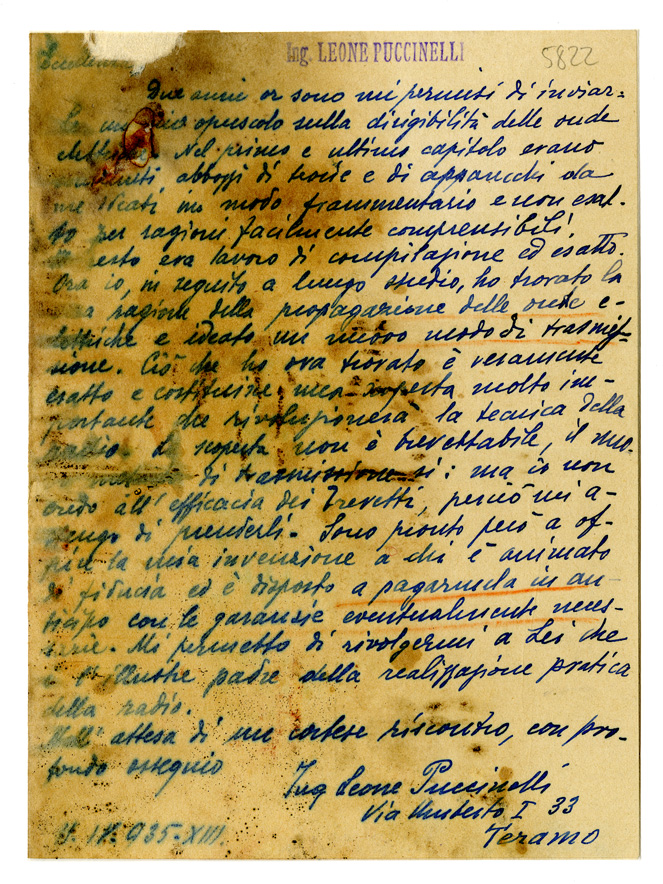 Ing. LEONE PUCCINELLI
5822
Eccellenza
Due anni or sono mi permisi di inviar=
Le un mio opuscolo sulla dirigibilità delle onde
elettriche. Nel primo e ultimo capitolo erano
abbozzi di teorie e di apparecchi da
me in modo frammentario e non esat-
to per ragioni facilmente comprensibili.
esto era lavoro di compilazione ed esatto.
Ora io, in seguito a lungo studio, ho trovato la
ragione della propagazione delle onde e-
lettriche e ideato un nuovo modo di trasmis-
sione. Ciò che ho ora trovato è veramente
esatto e costituisce una scoperta molto im-
portante che rivoluzionerà la tecnica della
radio. La scoperta non è brevettabile, il nuo-
di trasmissione sì: ma io non
credo all'efficacia dei brevetti, perciò mi a-
stengo di prenderli. Sono pronto però a of-
frire la mia invenzione a chi è animato
di fiducia ed è disposto a pagarmela in an-
ticipo con le garanzie eventualmente neces-
sarie. Mi permetto di rivolgermi a Lei che
è l'illustre padre della realizzazione pratica
della radio.
Nell'attesa di un cortese riscontro, con pro-
fondo ossequio
Ing Leone Puccinelli
Via Umberto I 33
Teramo
935-XIII.